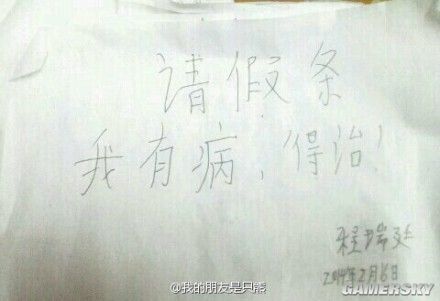 请假条
我有病，得治！
程瑞廷
2014年2月16日
@我的朋友是只熊
GAMERSKY